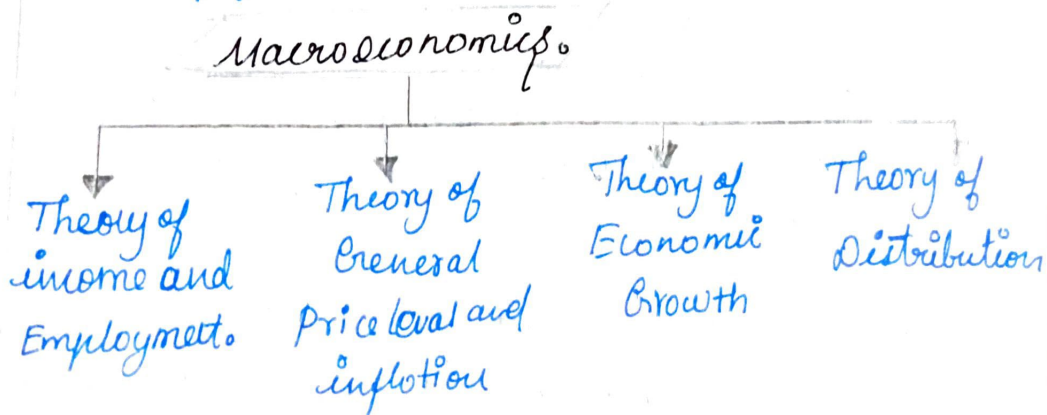 Macroeconomics.
Theory of
income and
Employmett.
Theory of
General
Price leval and
inflotion
Theory of
Economic
Growth
Theory of
Distribution